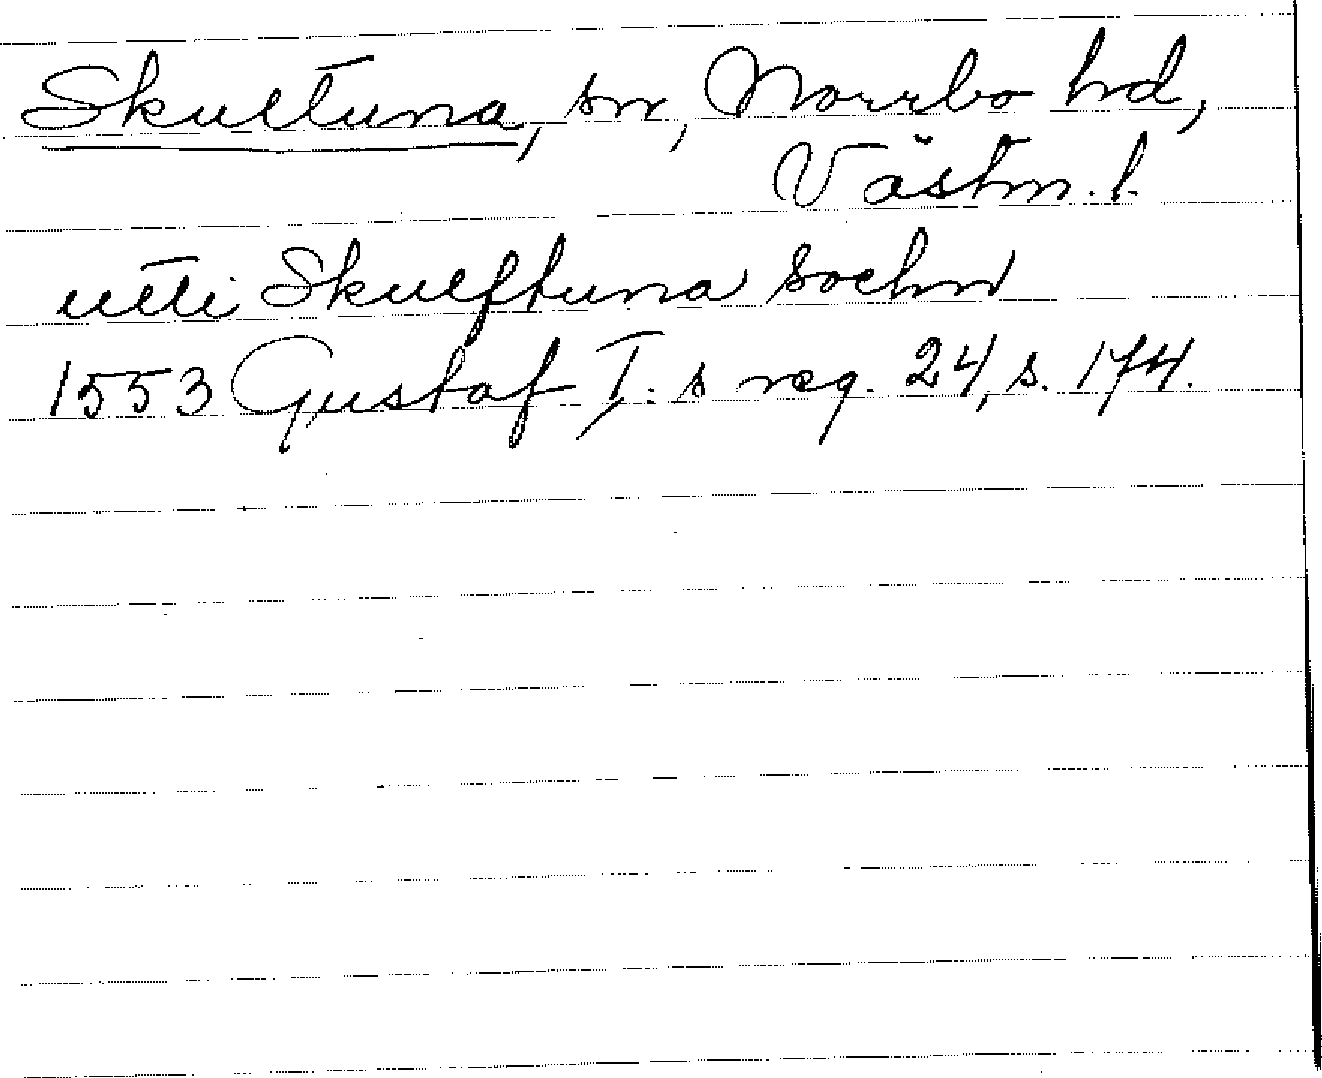 Skultuna, sn, Norrbo hd,
Västm. l.
utti Skulftuna sochn
1553 Gustaf I:s reg. 24, s. 174.